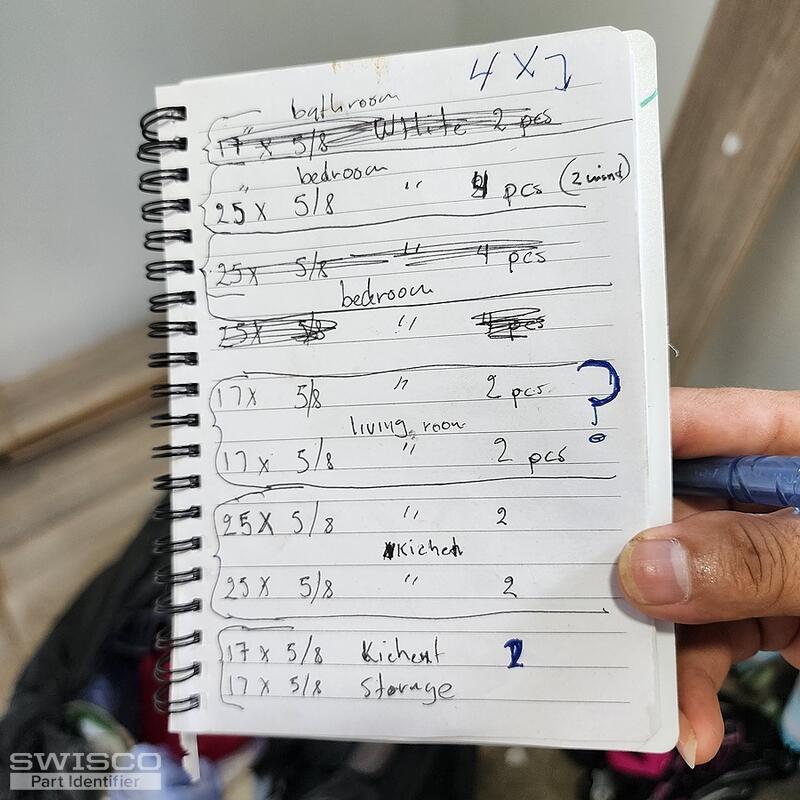 4 X
bathroom
17" x 5/8 WHite 2 pcs
bedroom
25" x 5/8 " 4 pcs (2 wind)
25 x 5/8 " 4 pcs
bedroom
25 x 5/8 " 4 pcs
17 x 5/8 " 2 pcs ?
living room
17 x 5/8 " 2 pcs
25 x 5/8 " 2
Kichen
25 x 5/8 " 2
17 x 5/8 Kichent
17 x 5/8 Storage
SWISCO
Part Identifier